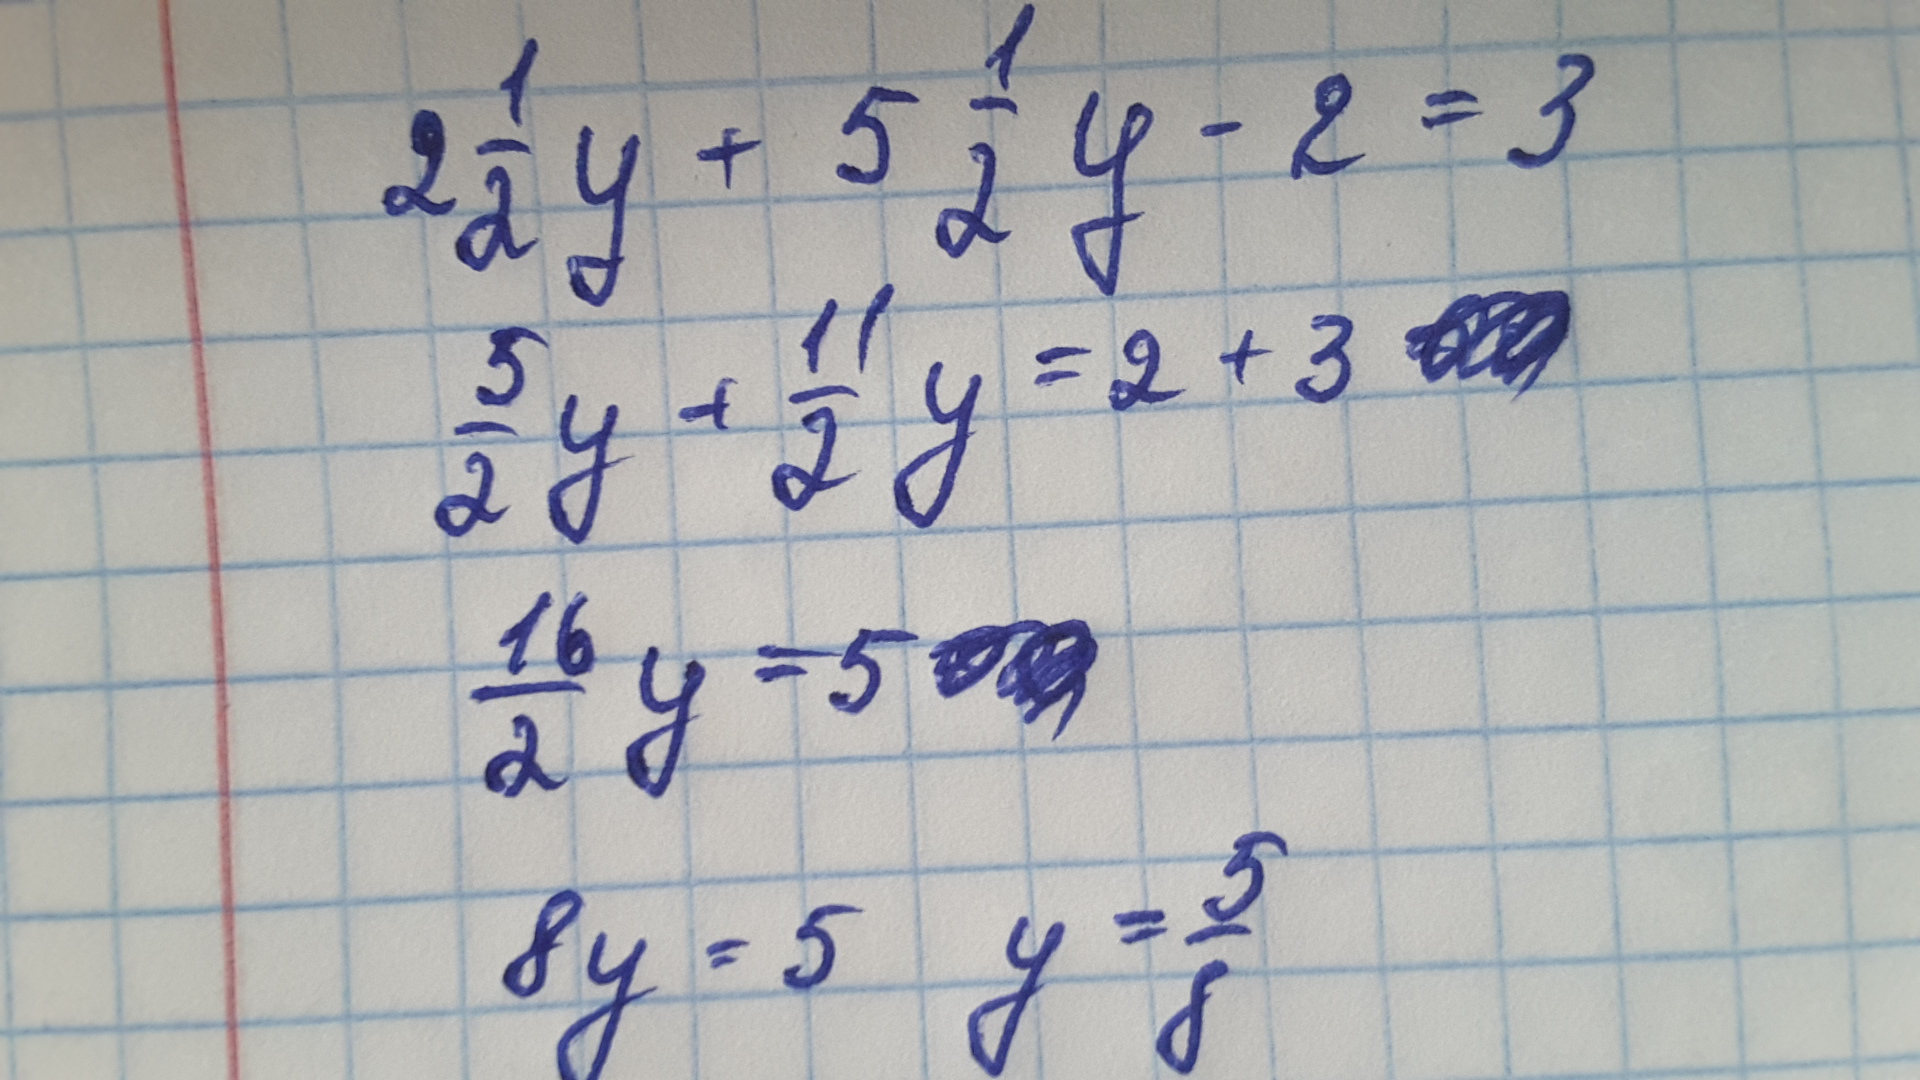 2 1/2 y + 5 1/2 y - 2 = 3
5/2 y + 11/2 y = 2 + 3
16/2 y = 5
8y = 5 y = 5/8